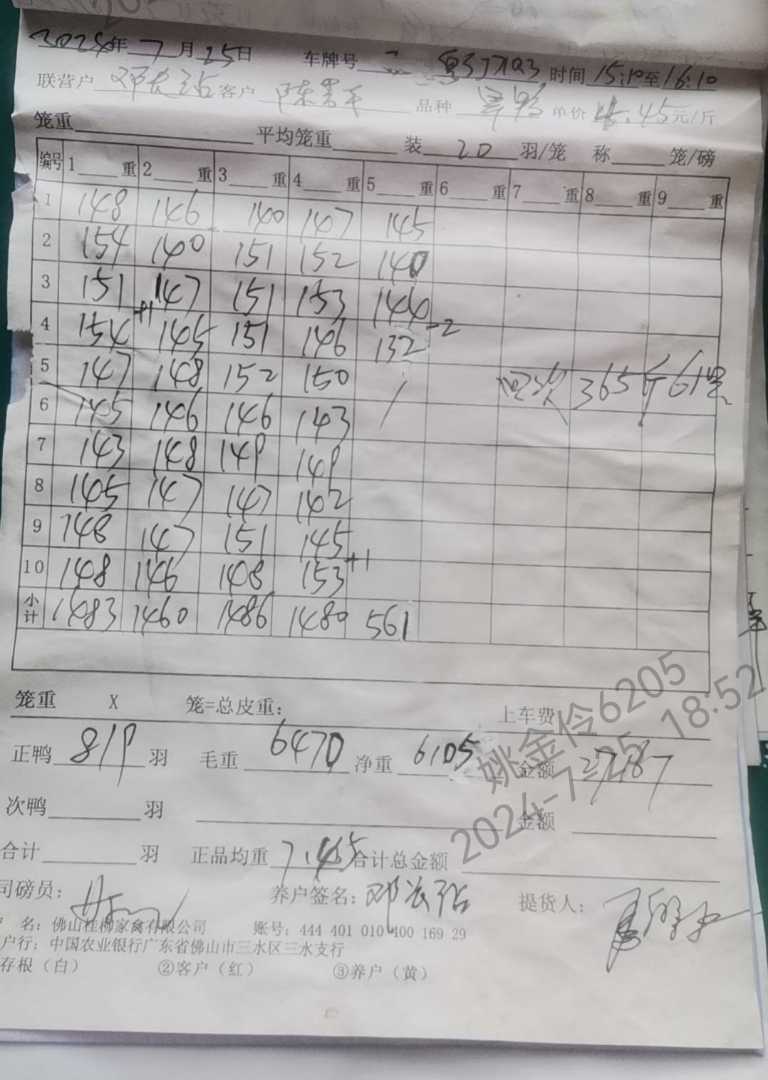 2024年7月25日 车牌号 时间15:10至16:10
联营户 客户 品种 单价 4.45元/斤
笼重 平均笼重 装20羽/笼 称 笼/磅
编号 1 重 2 重 3 重 4 重 5 重 6 重 7 重 8 重 9 重
1 148 146 140 147 145
2 154 140 151 152 140
3 151 147 151 153 144
4 154 +1 145 151 146 132 -2
5 147 148 152 150 365斤 61
6 145 146 146 143
7 143 148 149 149
8 145 147 147 142
9 148 147 151 145
10 148 146 148 153 +1
小计 1483 1460 1486 1480 561
笼重 X 笼=总皮重: 上车费
正鸭 819 羽 毛重 6470 净重 6105 金额 27187
次鸭 羽 金额
合计 羽 正品均重 7.465 合计总金额
司磅员: 养户签名: 提货人:
名: 佛山桂柳家禽有限公司 账号: 444 401 010 400 169 29
户行: 中国农业银行广东省佛山市三水区三水支行
存根(白) ②客户(红) ③养户(黄)
姚金伶6205
2024-7-25 18:52